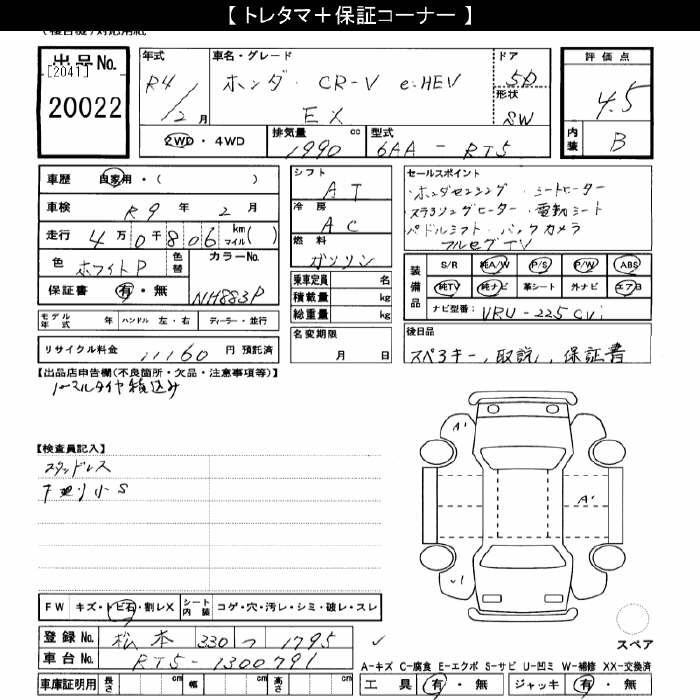 【 トレタマ＋保証コーナー 】
出品No.
[2041]
20022
年式
R4/12月
車名・グレード
ホンダ CR-V e:HEV
EX
ドア
5D
形状
SW
評価点
4.5
内装
B
2WD・4WD
排気量
1990 cc
型式
6AA - RT5
車歴 自家用・( )
車検 R9年 2月
走行 4万0千806 km マイル( )
色 ホワイトP
色替
カラーNo.
NH883P
保証書 有・無
シフト
AT
冷房
AC
燃料
ガソリン
乗車定員 名
積載量 kg
総重量 kg
セールスポイント
・ホンダセンシング ・シートヒーター
・ステアリングヒーター ・電動シート
・パドルシフト ・バックカメラ
フルセグTV
装備品
S/R 純A/W P/S P/W ABS
純TV 純ナビ 革シート 外ナビ エアB
ナビ型番: VRU-225CVi
モデル年式 年 ハンドル 左・右 ディーラー・並行
名変期限
月 日
後日品
スペアキー、取説、保証書
リサイクル料金 11160円 預託済
【出品店申告欄(不良箇所・欠品・注意事項等)】
ノーマルタイヤ積込み
【検査員記入】
スタッドレス
下廻り小S
A'
A'
FW キズ・トビ石・割レX
シート内装 コゲ・穴・汚レ・シミ・破レ・スレ
スペア
登録No. 松本 330 つ 1795
車台No. RT5-1300791
A-キズ C-腐食 E-エクボ S-サビ U-凹ミ W-補修 XX-交換済
車庫証明用 長さ cm 幅 cm 高さ cm
工具 有・無 ジャッキ 有・無